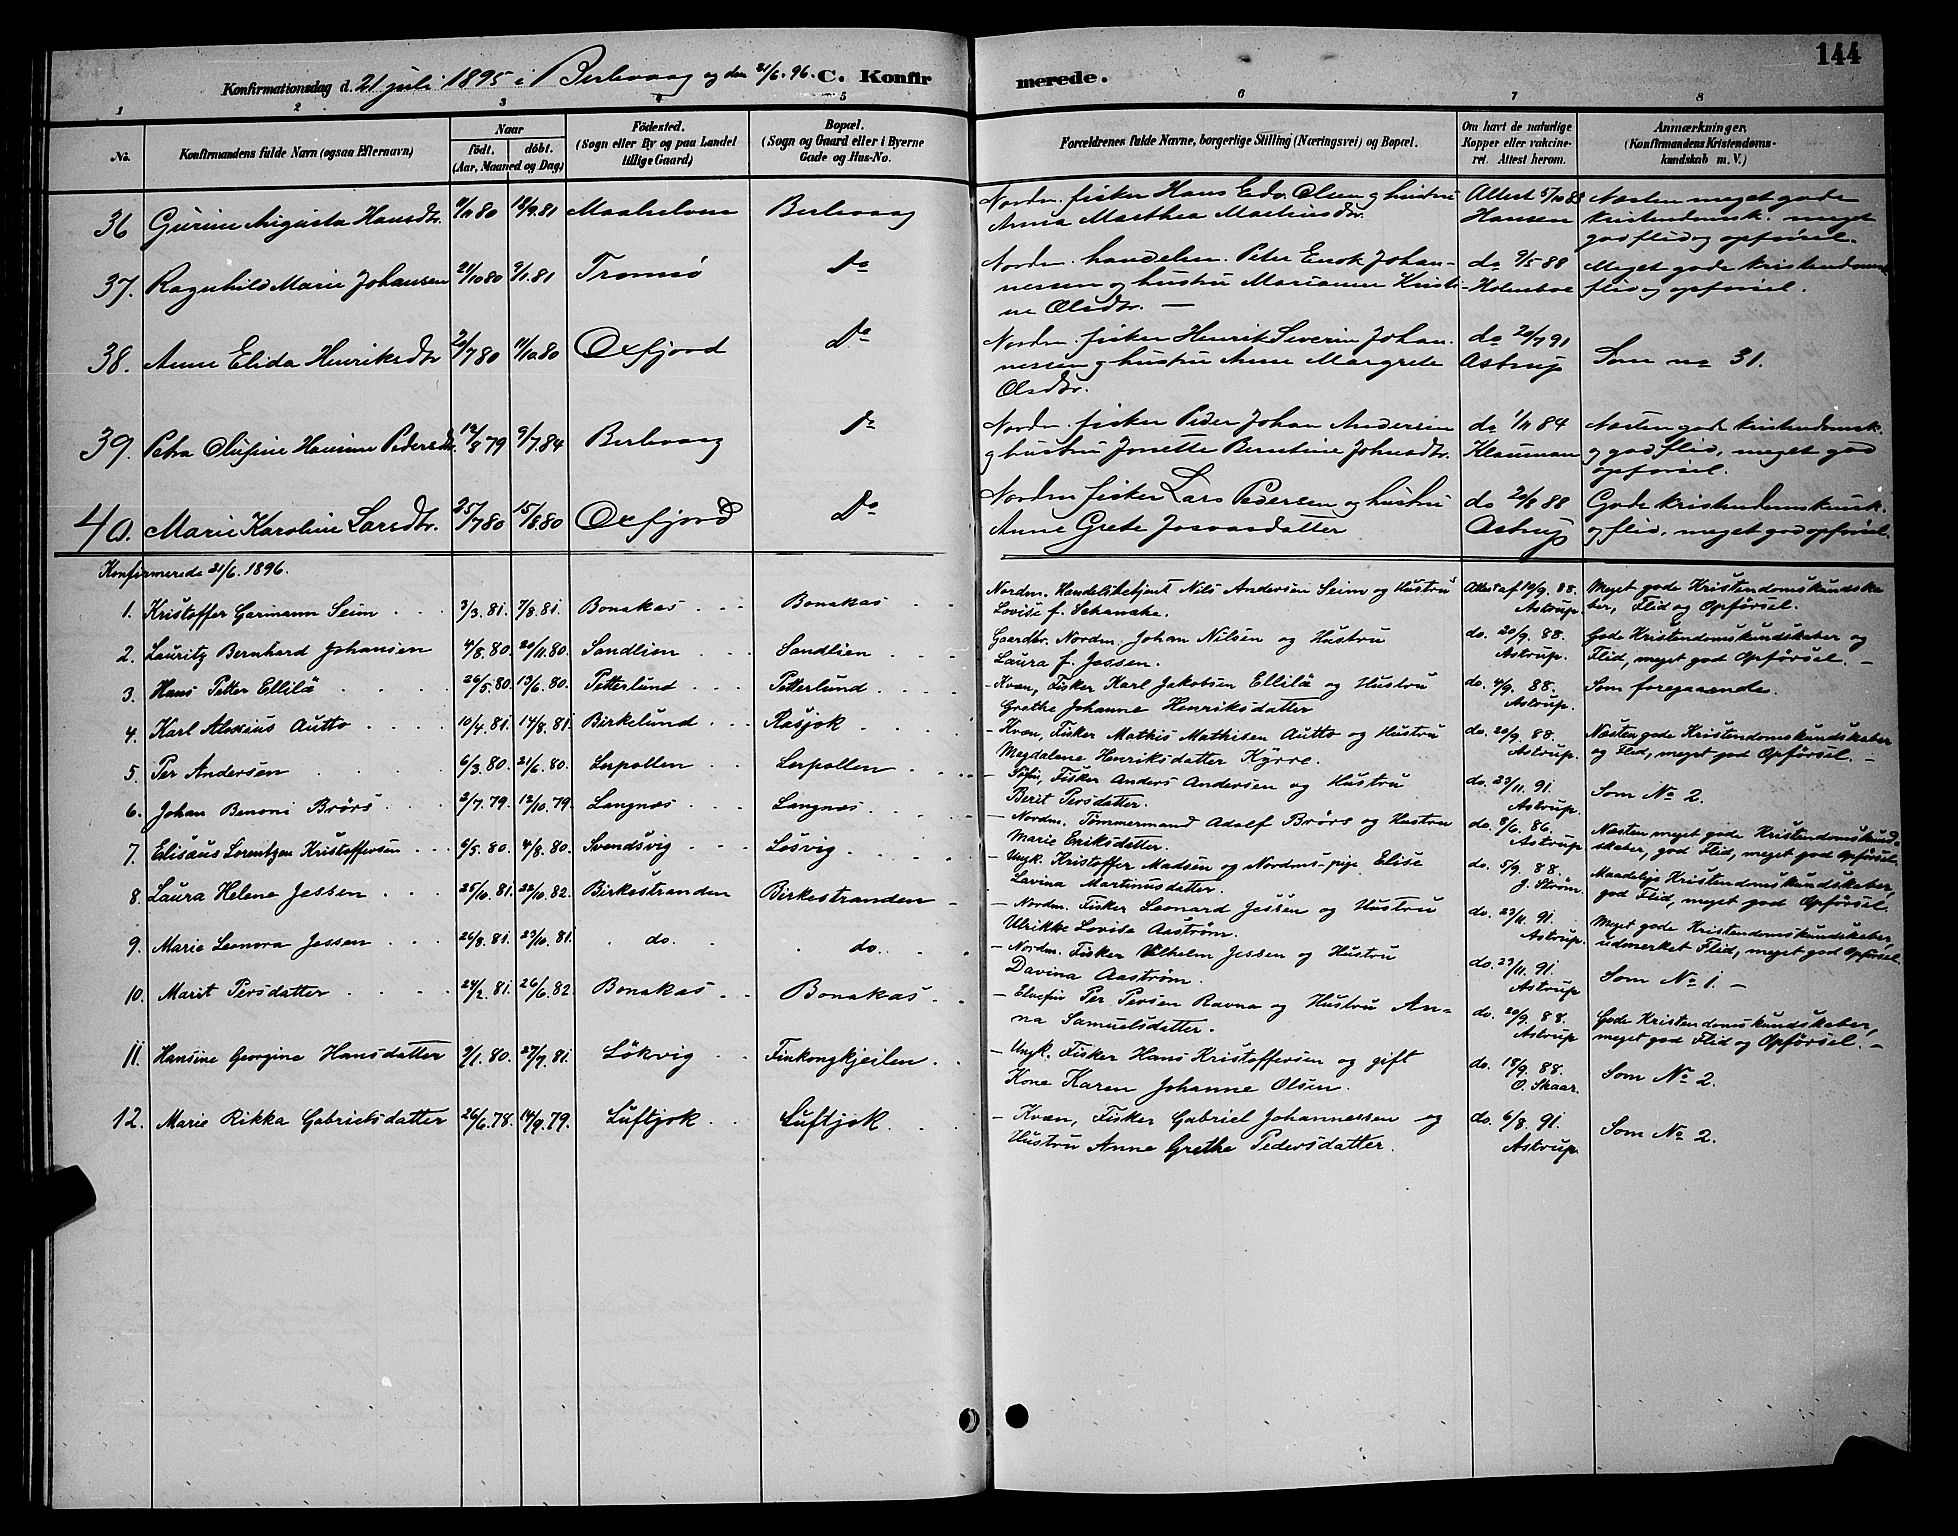 144
Konfirmationsdag d. 21 juli 1895 i Berlevaag og den 21/6. 96. C. Konfirmerede.
1 2 3 4 5 6 7 8
No. Konfirmandens fulde Navn (ogsaa Efternavn) Naar födt. döbt. (Aar, Maaned og Dag) Födested. (Sogn eller By og paa Landet tillige Gaard) Bopæl. (Sogn og Gaard eller i Byerne Gade og Hus-No. Forældrenes fulde Navne, borgerlige Stilling (Næringsvei) og Bopæl. Om havt de naturlige Kopper eller vakcineret. Attest herom. Anmærkninger, (Konfirmandens Kristendomskundskab m. V.)
36 Gurine Augusta Hansdtr. 80 18/9.81 Maalselven Berlevaag Nordm. fisker Hans Edv. Olsen og hustru Attest 5/10 88 Næsten meget gode
Anna Marthea Martinsdtr. Hansen kristendomsk. meget
god flid og opførsel.
37. Ragnhild Marie Johansen 21/10 80 9/1.81 Tromsø Do Nordm. handelsm. Peter Enok Johan- do 9/5 88 Meget gode kristendomsk.
nessen og hustru Marianne Kristi- Holmboe flid og opførsel.
ne Olsdtr. —
38. Anne Elida Henriksdtr 2/7 80 11/10 80 Oxfjord Do Nordm. fisker Henrik Severin Johan- do 20/7 91
nessen og hustru Anne Margrete Astrup Som no 31.
Olsdtr.
39. Petra Olufine Hansine Pedersdtr. 12/8 79 9/7.84 Berlevaag Do Nordm. fisker Peder Johan Andersen do 1/11 84 Næsten gode kristendomsk.
og hustru Jonette Berntine Johnsdtr. Klauman og god flid, meget god
opførsel.
40. Marie Karoline Larsdtr. 25/7 80 15/8.80 Oxfjord Do Nordm fisker Lars Pedersen og hustru do 20/8 88 Gode kristendomskunsk.
Anne Grete Josvasdatter Astrup og flid, meget god opførsel.
Konfirmerede 21/6. 1896.
1. Kristoffer Garmann Seim 3/3.81. 7/8.81. Bonakas Bonakas Nordm. Handelsbetjent Nils Andersen Seim og Hustru Attest af 19/9. 88. Meget gode Kristendomskundska
Lovise f. Schanche. Astrup. ber, Flid og Opførsel.
2. Lauritz Bernhard Johansen 4/8.80. 20/11.80. Sandlien Sandlien Gaardbr. Nordm. Johan Nilsen og Hustru do. 20/9. 88. Gode Kristendomskundskaber og
Laura f. Jessen. Astrup. Flid, meget god Opførsel. —
3. Hans Petter Ellilä 26/5.80. 13/6.80. Petterlund Petterlund - Kvæn, Fisker Karl Jakobsen Ellilä og Hustru do. 4/9. 88. Som foregaaende.
Grethe Johanne Henriksdatter Astrup.
4. Karl Aloxius Autto 10/4.81. 14/8.81. Birkelund Rasjok - Kvæn, Fisker Mathis Mathisen Autto og Hustru do. 20/9. 88. Næsten gode Kristendomskundskaber
Magdalene Henriksdatter Kyrre. Astrup. og Flid, meget god Opførsel. —
5. Per Andersen 6/3.80. 21/6.80. Lerpollen Lerpollen - Søfin, Fisker Anders Andersen og Hustru do. 23/11. 91. Som No 2.
Berit Persdatter. Astrup.
6. Johan Benoni Brörs 2/7.79. 12/10.79. Langnæs Langnæs - Nordm. Tömmermand Adolf Brörs og Hustru do. 8/6. 86. Næsten meget gode Kristendomskund
Marie Eriksdatter. Astrup. skaber, god Flid, meget god Opførsel.
7. Elisæus Lorentzen Kristoffersen 6/5.80. 4/8.80. Svendsvig Lösvig - Ungk. Kristoffer Madsen og Nordms-pige Elise do. 5/9. 88. Maadelige Kristendomskundskaber,
Lavina Martinusdatter. J. Strøm. god Flid, meget god Opførsel.
8. Laura Helene Jessen 25/10.81. 22/10.82. Birkestranden Birkestranden - Nordm. Fisker Leonard Jessen og Hustru do. 23/11. 91. Meget gode Kristendomskundskaber,
Ulrikke Lovise Aaström. Astrup. udmerket Flid, meget god Opførsel.
9. Marie Leonora Jessen 26/8.81. 23/10.81. do. do. - Nordm. Fisker Vilhelm Jessen og Hustru do. 23/11. 91. Som No 1. —
Davina Aaström. Astrup
10. Marit Persdatter 24/2.81. 26/6.82. Bonakas Bonakas - Elvefin Per Persen Ravna og Hustru An- do. 20/9. 88. Gode Kristendomskundskaber,
na Samuelsdatter. Astrup. meget god Flid og Opførsel. —
11. Hansine Georgine Hansdatter 9/1.80. 27/7.81. Lökvig Finkongkjeilen - Ungk. Fisker Hans Kristoffersen og gift do. 18/9. 88. Som No 2.
Kone Karen Johanne Olsen. O. Skaar.
12. Marie Rikka Gabrielsdatter 26/6.78. 14/9.79. Luftjok Luftjok - Kvæn, Fisker Gabriel Johannessen og do. 6/8. 91. Som No 2.
Hustru Anne Grethe Pedersdatter. Astrup.